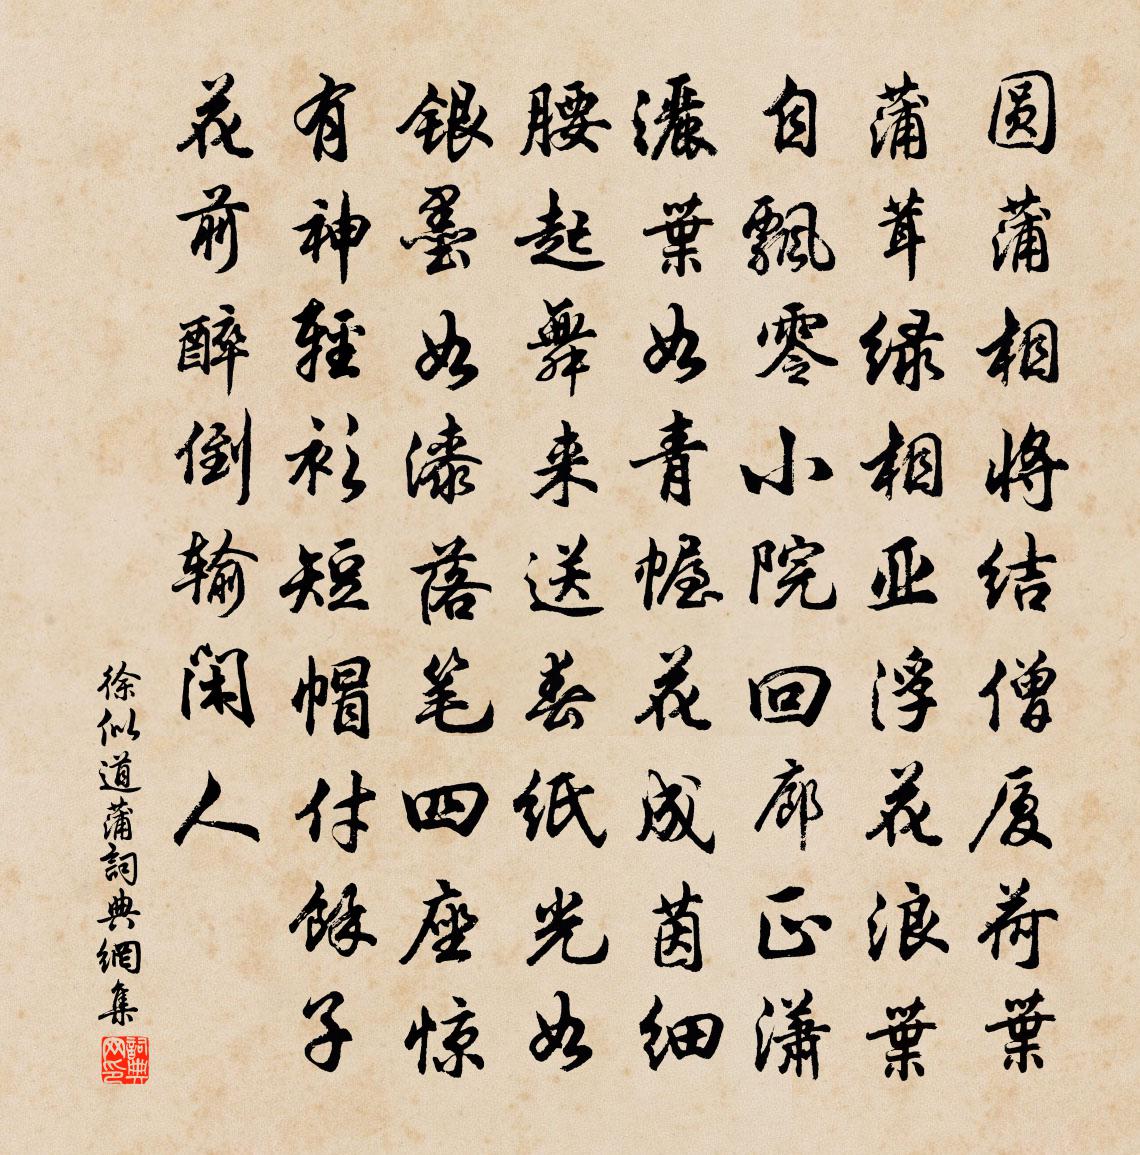 圆蒲相将结僧厦荷葉
蒲茸绿相亚浮花浪葉
自飄零小院回廊正潇
灑葉如青幄花成茵细
腰起舞来送春纸光如
银墨如漆落笔四座惊
有神輕衫短帽付馀子
花前醉倒输闲人
徐似道蒲詞典網集
詞典网印